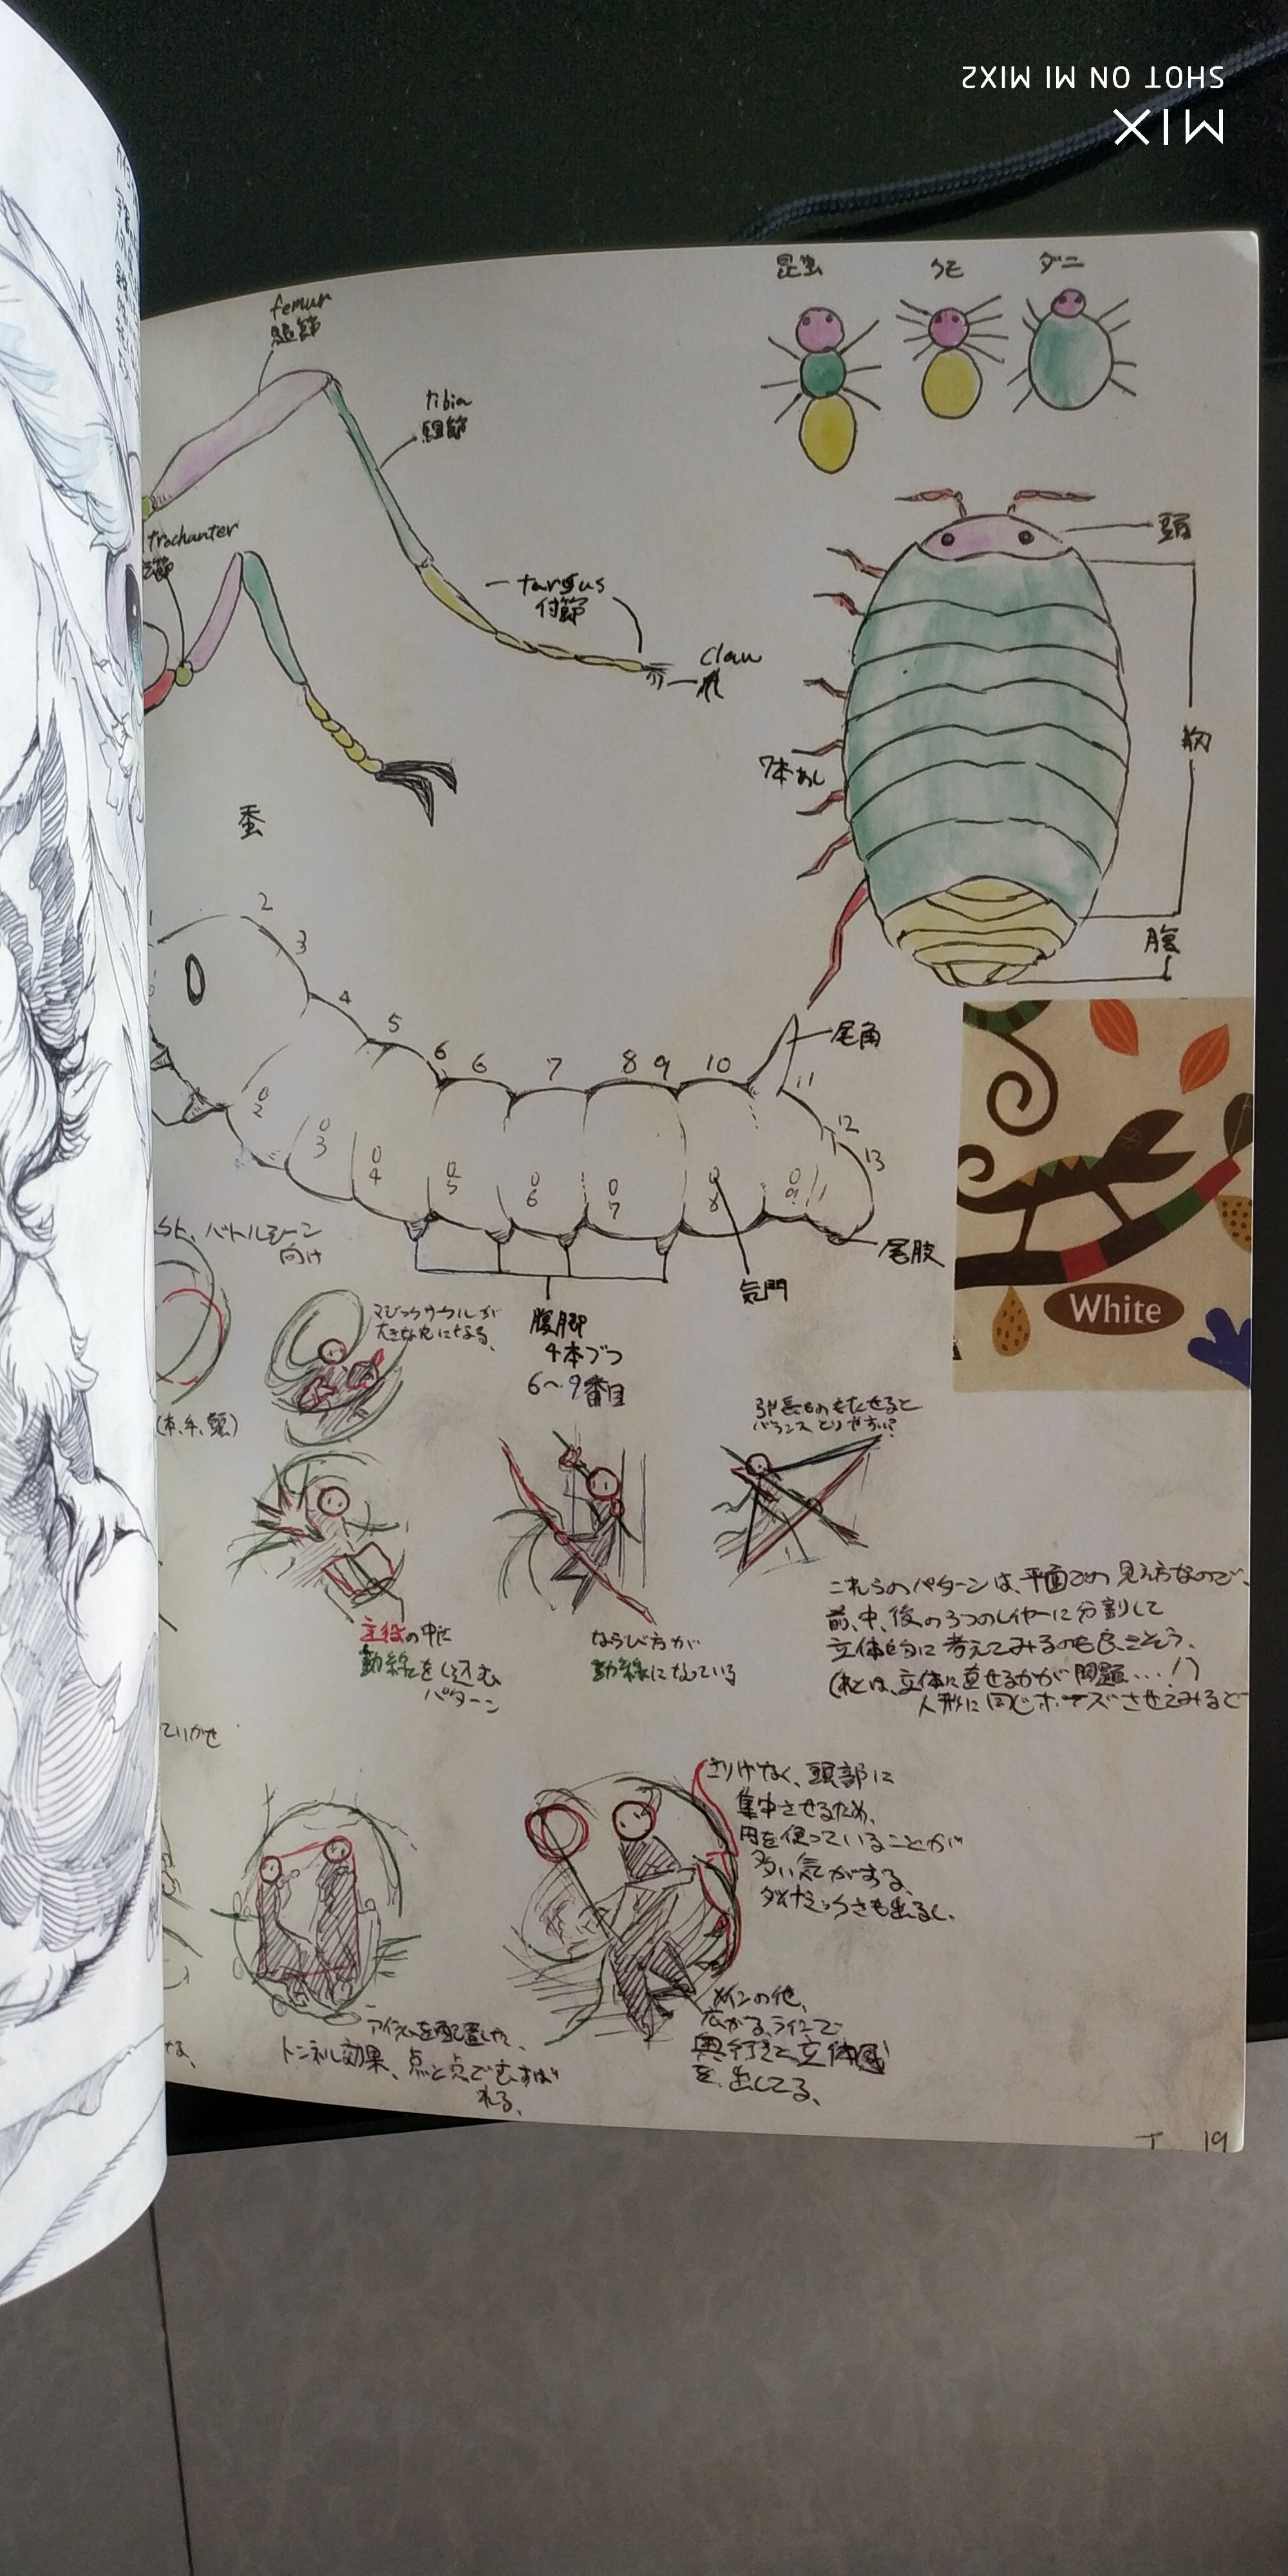 SHOT ON MI MIX2
MIX
昆虫
クモ
ダニ
femur
腿節
tibia
脛節
trochanter
節
tarsus
付節
claw
爪
頭
胸
7本あし
腹
蚕
2
3
4
5
6
6
7
8
9
10
11
12
13
0
2
0
3
0
4
0
5
0
6
0
7
0
8
0
9
尾角
尾肢
気門
腹脚
4本づつ
6〜9番目
White
バトルシーン
向け
大きな丸になる、
(本、手、頭)
主役の中に
動線をしこむ
パターン
ならび方が
動線になっている
引き長ものもたせると
バランスとりやすい?
これらのパターンは、平面での見え方なので、
前、中、後の3つのレイヤーに分割して
立体的に考えてみるのも良さそう、
立体に直せるかが問題....!)
人形に同じポーズさせてみると
さりげなく、頭部に
集中させるため、
円を使っていることが
多い気がする、
ダイナミックさも出るし、
メインの他、
広がるラインで
奥行きと立体感
を、出してる、
アイテムを配置した、
トンネル効果、点と点でむすば
れる、
19